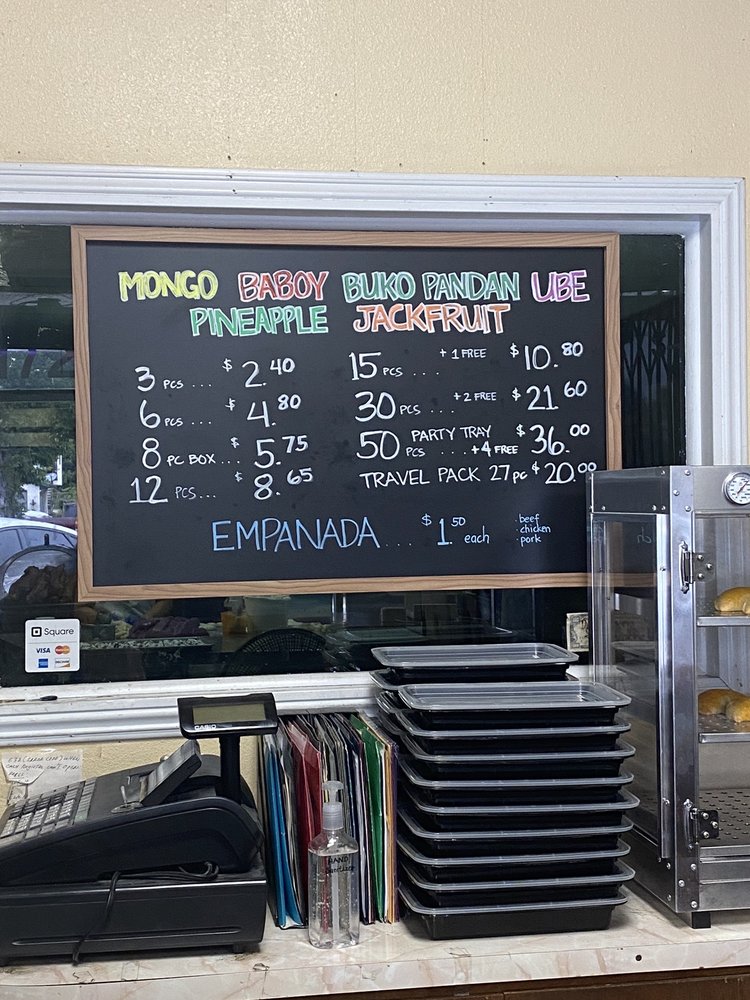 MONGO BABOY BUKO PANDAN UBE
PINEAPPLE JACKFRUIT
3 PCS ... $2.40
6 PCS ... $4.80
8 PC BOX ... $5.75
12 PCS ... $8.65
15 PCS .... +1 FREE $10.80
30 PCS .... +2 FREE $21.60
50 PCS PARTY TRAY ...+4 FREE $36.00
TRAVEL PACK 27 PC $20.00
EMPANADA .... $1.50 each
· beef
· chicken
· pork
Square
VISA
DISCOVER
CASIO
HAND
Sanitizer